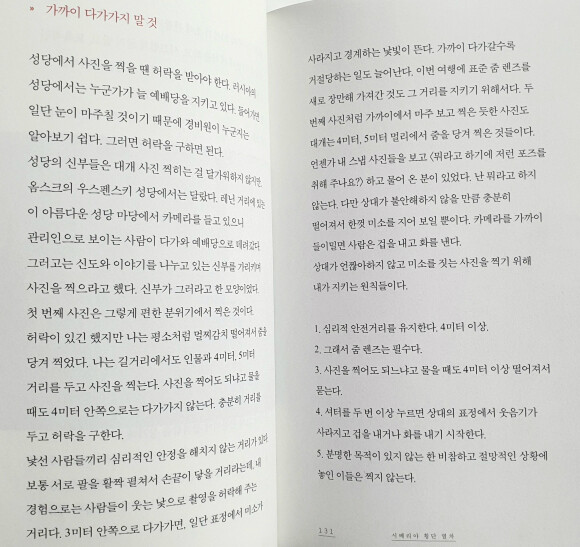 * 가까이 다가가지 말 것
성당에서 사진을 찍을 땐 허락을 받아야 한다. 러시아의
성당에서는 누군가가 늘 예배당을 지키고 있다. 들어가면
일단 눈이 마주칠 것이기 때문에 경비원이 누군지는
알아보기 쉽다. 그러면 허락을 구하면 된다.
성당의 신부들은 대개 사진 찍히는 걸 달가워하지 않지만,
옴스크의 우스펜스키 성당에서는 달랐다. 레닌 거리에 있는
이 아름다운 성당 마당에서 카메라를 들고 있으니
관리인으로 보이는 사람이 다가와 예배당으로 데려갔다.
그러고는 신도와 이야기를 나누고 있는 신부를 가리키며
사진을 찍으라고 했다. 신부가 그러라고 한 모양이었다.
첫 번째 사진은 그렇게 편한 분위기에서 찍은 것이다.
허락이 있긴 했지만 나는 평소처럼 멀찌감치 떨어져서 줌을
당겨 찍었다. 나는 길거리에서도 인물과 4미터, 5미터
거리를 두고 사진을 찍는다. 사진을 찍어도 되냐고 물을
때도 4미터 안쪽으로는 다가가지 않는다. 충분히 거리를
두고 허락을 구한다.
낯선 사람들끼리 심리적인 안정을 해치지 않는 거리가 있다.
보통 서로 팔을 활짝 펼쳐서 손끝이 닿을 거리라는데, 내
경험으로는 사람들이 웃는 낯으로 촬영을 허락해 주는
거리다. 3미터 안쪽으로 다가가면, 일단 표정에서 미소가
사라지고 경계하는 낯빛이 뜬다. 가까이 다가갈수록
거절당하는 일도 늘어난다. 이번 여행에 표준 줌 렌즈를
새로 장만해 가져간 것도 그 거리를 지키기 위해서다. 두
번째 사진처럼 가까이에서 마주 보고 찍은 듯한 사진도
대개는 4미터, 5미터 멀리에서 줌을 당겨 찍은 것들이다.
언젠가 내 스냅 사진들을 보고 〈뭐라고 하기에 저런 포즈를
취해 주나요?〉 하고 물어 온 분이 있었다. 난 뭐라고 하지
않는다. 다만 상대가 불안해하지 않을 만큼 충분히
떨어져서 한껏 미소를 지어 보일 뿐이다. 카메라를 가까이
들이밀면 사람은 겁을 내고 화를 낸다.
상대가 언짢아하지 않고 미소를 짓는 사진을 찍기 위해
내가 지키는 원칙들이다.
1. 심리적 안전거리를 유지한다. 4미터 이상.
2. 그래서 줌 렌즈는 필수다.
3. 사진을 찍어도 되느냐고 물을 때도 4미터 이상 떨어져서
묻는다.
4. 셔터를 두 번 이상 누르면 상대의 표정에서 웃음기가
사라지고 겁을 내거나 화를 내기 시작한다.
5. 분명한 목적이 있지 않는 한 비참하고 절망적인 상황에
놓인 이들은 찍지 않는다.
131
시베리아 횡단 열차